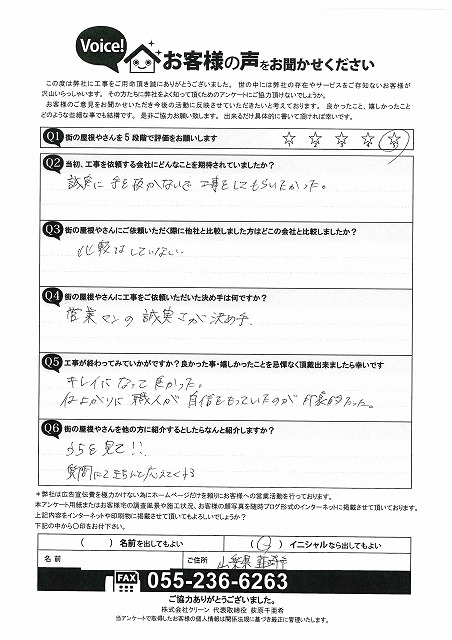 Voice!
お客様の声をお聞かせください
この度は弊社に工事をご用命頂き誠にありがとうございました。世の中には弊社の存在やサービスをご存知ないお客様が
沢山いらっしゃいます。その方たちに弊社をよく知って頂くためのアンケートにご協力頂けないでしょうか。
お客様のご意見をお聞かせいただき今後の活動に反映させていただきたいと考えております。良かったこと、嬉しかったこと
どのような些細な事でも結構です。是非ご協力お願い致します。出来るだけ具体的に書いて頂ければ幸いです。
Q1 街の屋根やさんを5段階で評価をお願いします ☆ ☆ ☆ ☆ ☆
Q2 当初、工事を依頼する会社にどんなことを期待されていましたか?
誠実に手を抜かないで工事をしてもらいたかった。
Q3 街の屋根やさんにご依頼いただく際に他社と比較しました方はどこの会社と比較しましたか?
比較はしていない。
Q4 街の屋根やさんに工事をご依頼いただいた決め手は何ですか?
営業マンの誠実さが決め手。
Q5 工事が終わってみていかがですか?良かった事・嬉しかったことを忌憚なく頂戴出来ましたら幸いです
キレイになって良かった。
仕上がりに職人が自信をもっていたのが印象的だった。
Q6 街の屋根やさんを他の方に紹介するとしたらなんと紹介しますか?
うちを見て!!
質問にきちんと応えてくれる
*弊社は広告宣伝費を極力かけない為にホームページだけを頼りにお客様への営業活動を行っております。
本アンケート用紙またはお客様宅の調査風景や施工状況、お客様の顔写真を随時ブログ形式のインターネットに掲載させて頂いております。
上記内容をインターネットや印刷物に掲載させて頂いてもよろしいでしょうか?
下記の中から〇印をお付下さい。
( ) 名前を出してもよい (〇) イニシャルなら出してもよい
名前 ご住所 山梨県韮崎市
FAX 055-236-6263
ご協力ありがとうございました。
株式会社クリーン 代表取締役 荻原千亜希
当アンケートで取得したお客様の個人情報は関係法規に基づき厳正に管理いたします。